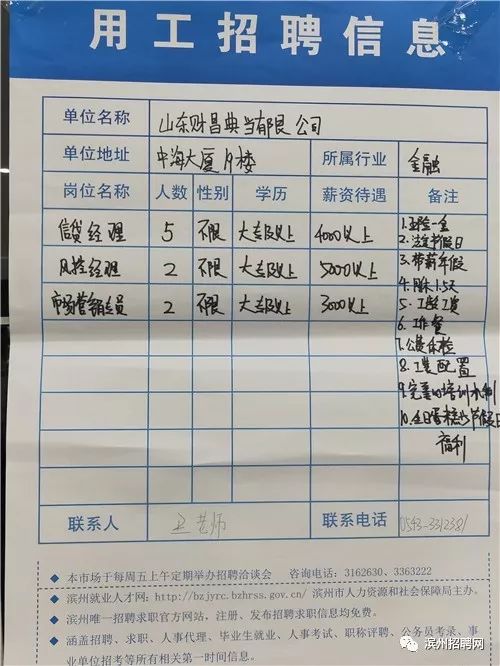 用工招聘信息
单位名称 山东财昌典当有限公司
单位地址 中海大厦19楼 所属行业 金融
岗位名称 人数 性别 学历 薪资待遇 备注
信贷经理 5 不限 大专及以上 4000以上
风控经理 2 不限 大专及以上 5000以上
市场营销专员 2 不限 大专及以上 3000以上
1.五险一金
2.法定节假日
3.带薪年假
4.月休1.5天
5.工龄工资
6.工作餐
7.公费体检
8.工装配置
9.完善的培训机制
10.生日蛋糕少节假日
福利
联系人 老师 联系电话 0543-3312381
◆ 本市场于每周五上午定期举办招聘洽谈会 咨询电话:3162630、3363222
◆ 滨州就业人才网:http://bzjyrc.bzhrss.gov.cn/ 滨州市人力资源和社会保障局主办。
◆ 滨州唯一招聘求职官方网站,注册、发布招聘求职信息均免费。
◆ 涵盖招聘、求职、人事代理、毕业生就业、人事考试、职称评聘、公务员考录、事
业单位招考等所有相关第一时间信息。
滨州招聘网